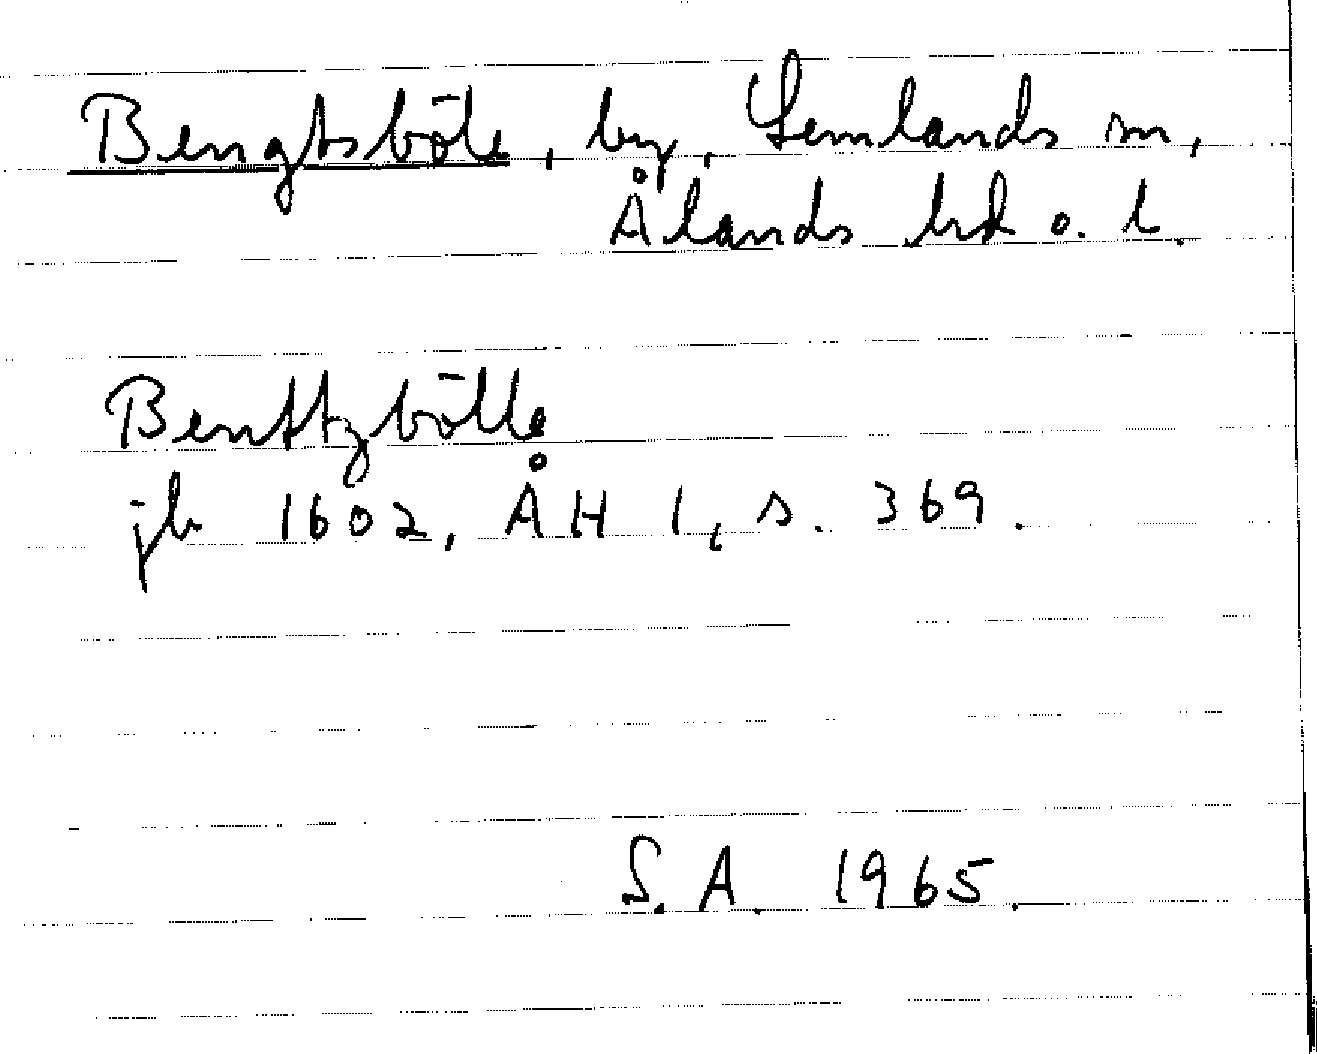 Bengtsböle, by, Lemlands sn,
Ålands hd o. l.
Benttzbölle
jb 1602, ÅH 1, s. 369.
S. A. 1965.